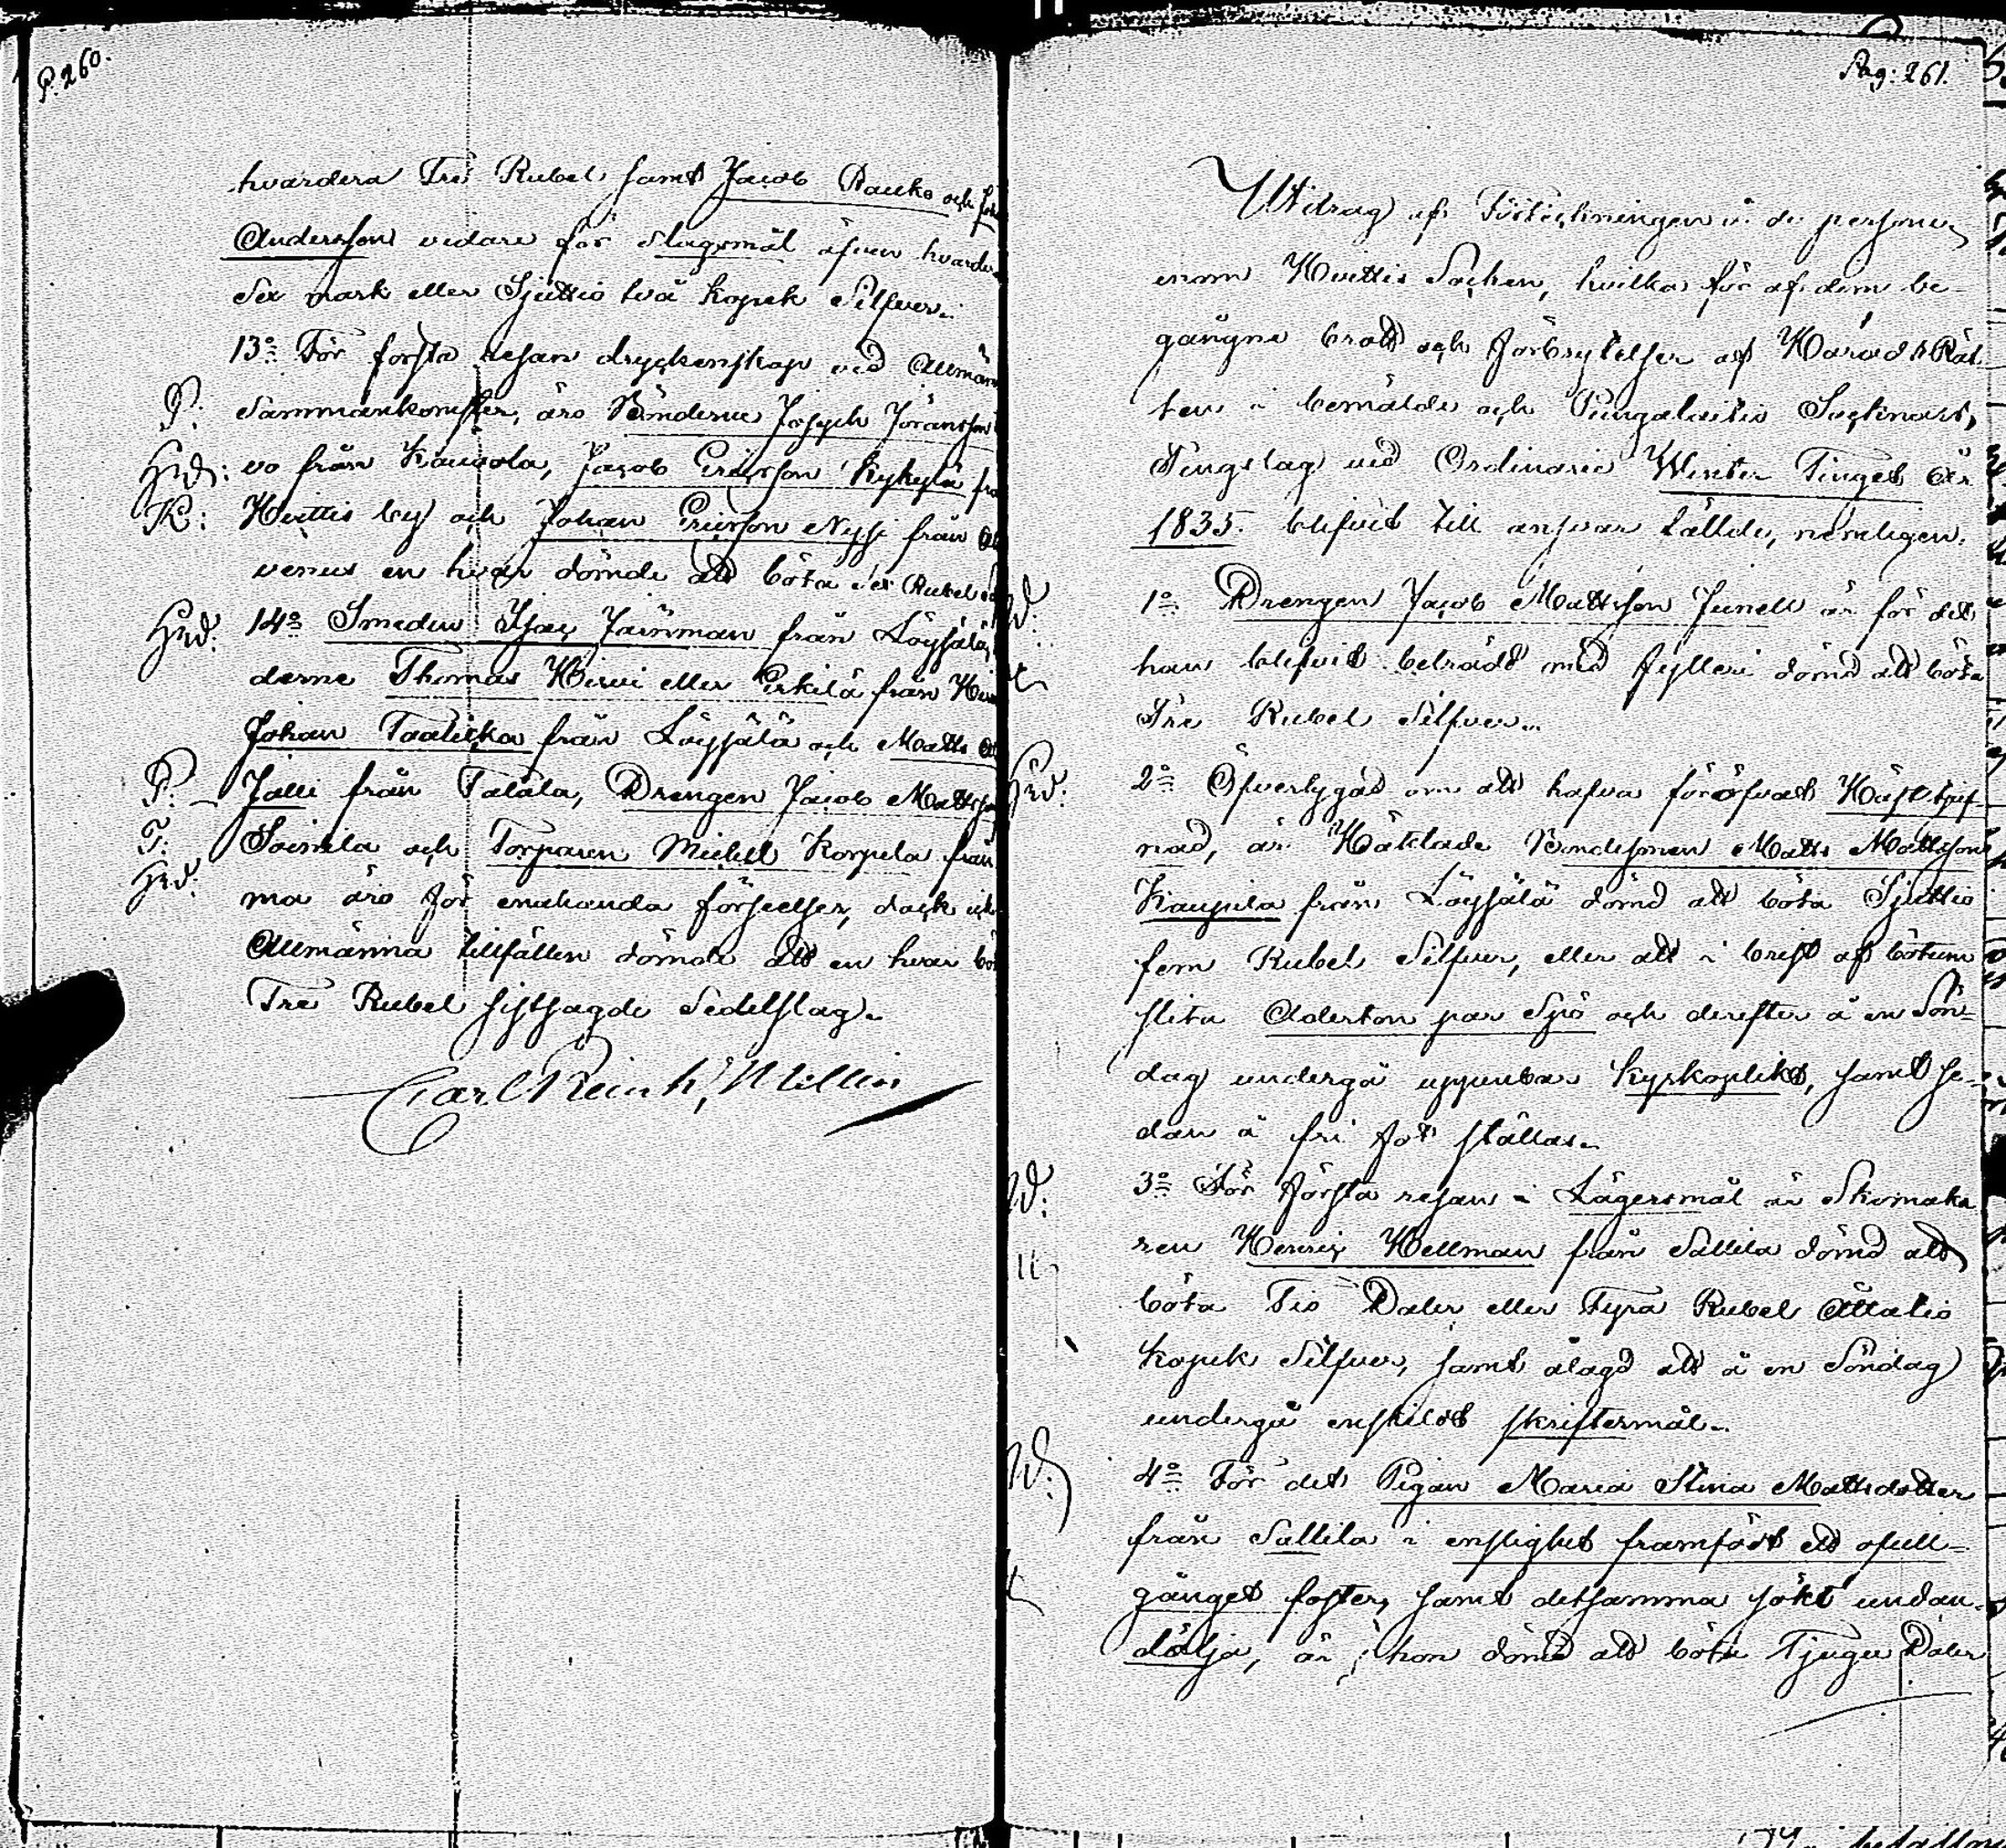 P. 260.
hvardera Tre Rubel samt Jacob Rauko och
Andersson vidare för slagsmål äfven hvardera
Sex mark eller Sjuttio två Kopek Silfver.
13:o För första resan dryckenskap vid Allmän
P: Sammankomster, äro Bönderne Joseph Jöransson
Hvd: vo från Kauvola, Jacob Ericsson Kykylä
K: Huittis by och Johan Ericsson Nyssi från
venus en hvar dömde att böta Sex Rubel
Hvd: 14:o Smeden Isac Järnman från Löysälä,
derne Thomas Hirvi eller Erkilä från
Johan Taalicka från Löysälä och Matts
P. Jalli från Talala, Drengen Jacob Mattsson
T: Soinila och Torparen Michell Korpela från
Hvd: ma äro för enahanda förseelser, dock
Allmänna tillfällen dömde att en hvar
Tre Rubel sistsagde Sedelslag.
Carl Reinh. Mellin
Pag: 261.
Utdrag af Förteckningen å de personer
inom Huittis Sochen, hvilka för af dem be-
gångne brott och förbrytelser af Härads Rät
ten i bemälde och Pungalaitio Sochnars
Tingslag vid Ordinarie Winter Tinget År
1835. blifvit till ansvar fällde, nemligen:
1:o Drengen Jacob Mattsson Junell är för det
han blifvit beträdd med fylleri dömd att böta
Tre Rubel Silfver.
Hvd: 2:o Öfvertygad om att hafva föröfvat Hästtjuf-
nad, är Häktade Bondesonen Matts Mattsson
Kaupila från Löysälä dömd att böta Sjuttio
fem Rubel Silfver, eller att i brist af böterne
slita Aderton par Spö och derefter å en Sön-
dag undergå uppenbar Kyrkoplikt, samt se-
dan å fri fot ställas.
3:o För första resan i Lägersmål är Skomaka
ren Henric Hellman från Sallila dömd att
böta Tio Daler eller Fyra Rubel Åttatio
Kopek Silfver, samt ålagd att å en Söndag
undergå enskildt skriftermål.
4:o För det Pigan Maria Stina Mattsdotter
från Sallila i enslighet framfödt ett ofull-
gånget foster, samt detsamma sökt undan-
dölja, är hon dömd att böta Tjugu Daler